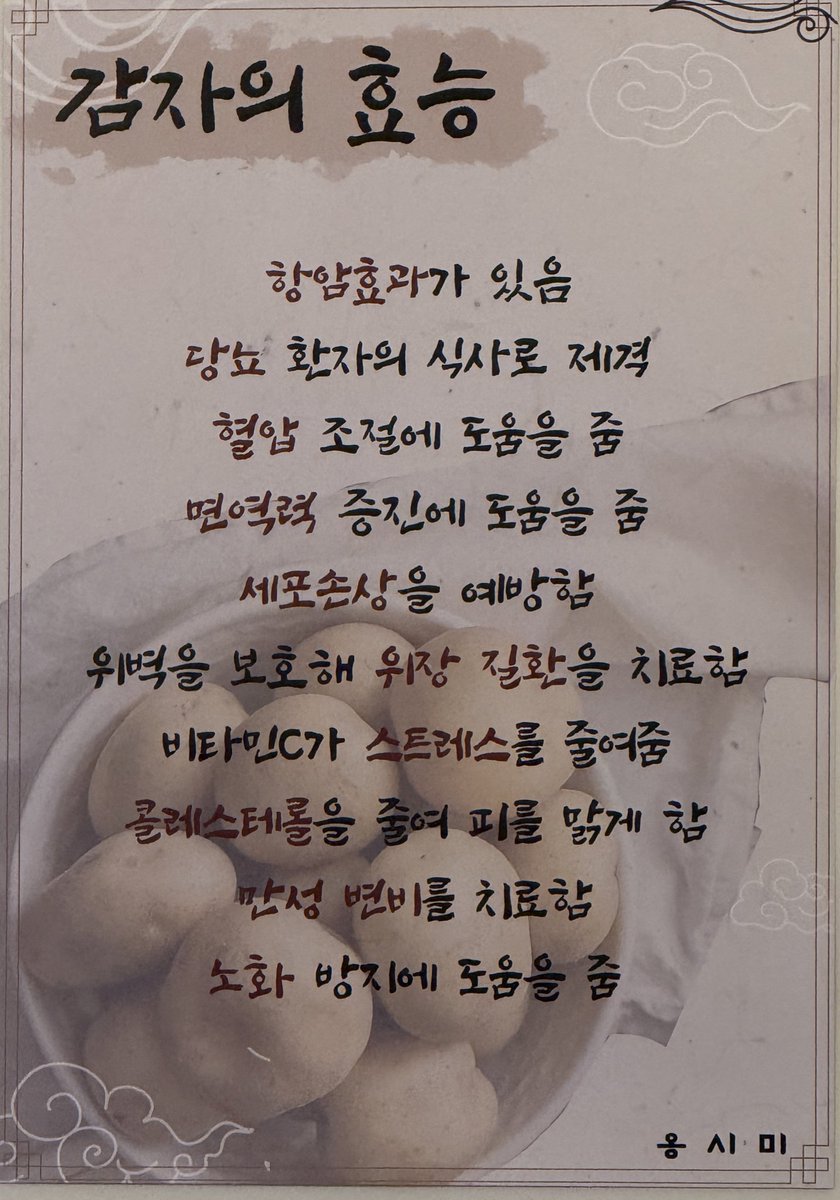 감자의 효능
항암효과가 있음
당뇨 환자의 식사로 제격
혈압 조절에 도움을 줌
면역력 증진에 도움을 줌
세포손상을 예방함
위벽을 보호해 위장 질환을 치료함
비타민C가 스트레스를 줄여줌
콜레스테롤을 줄여 피를 맑게 함
만성 변비를 치료함
노화 방지에 도움을 줌
옹시미